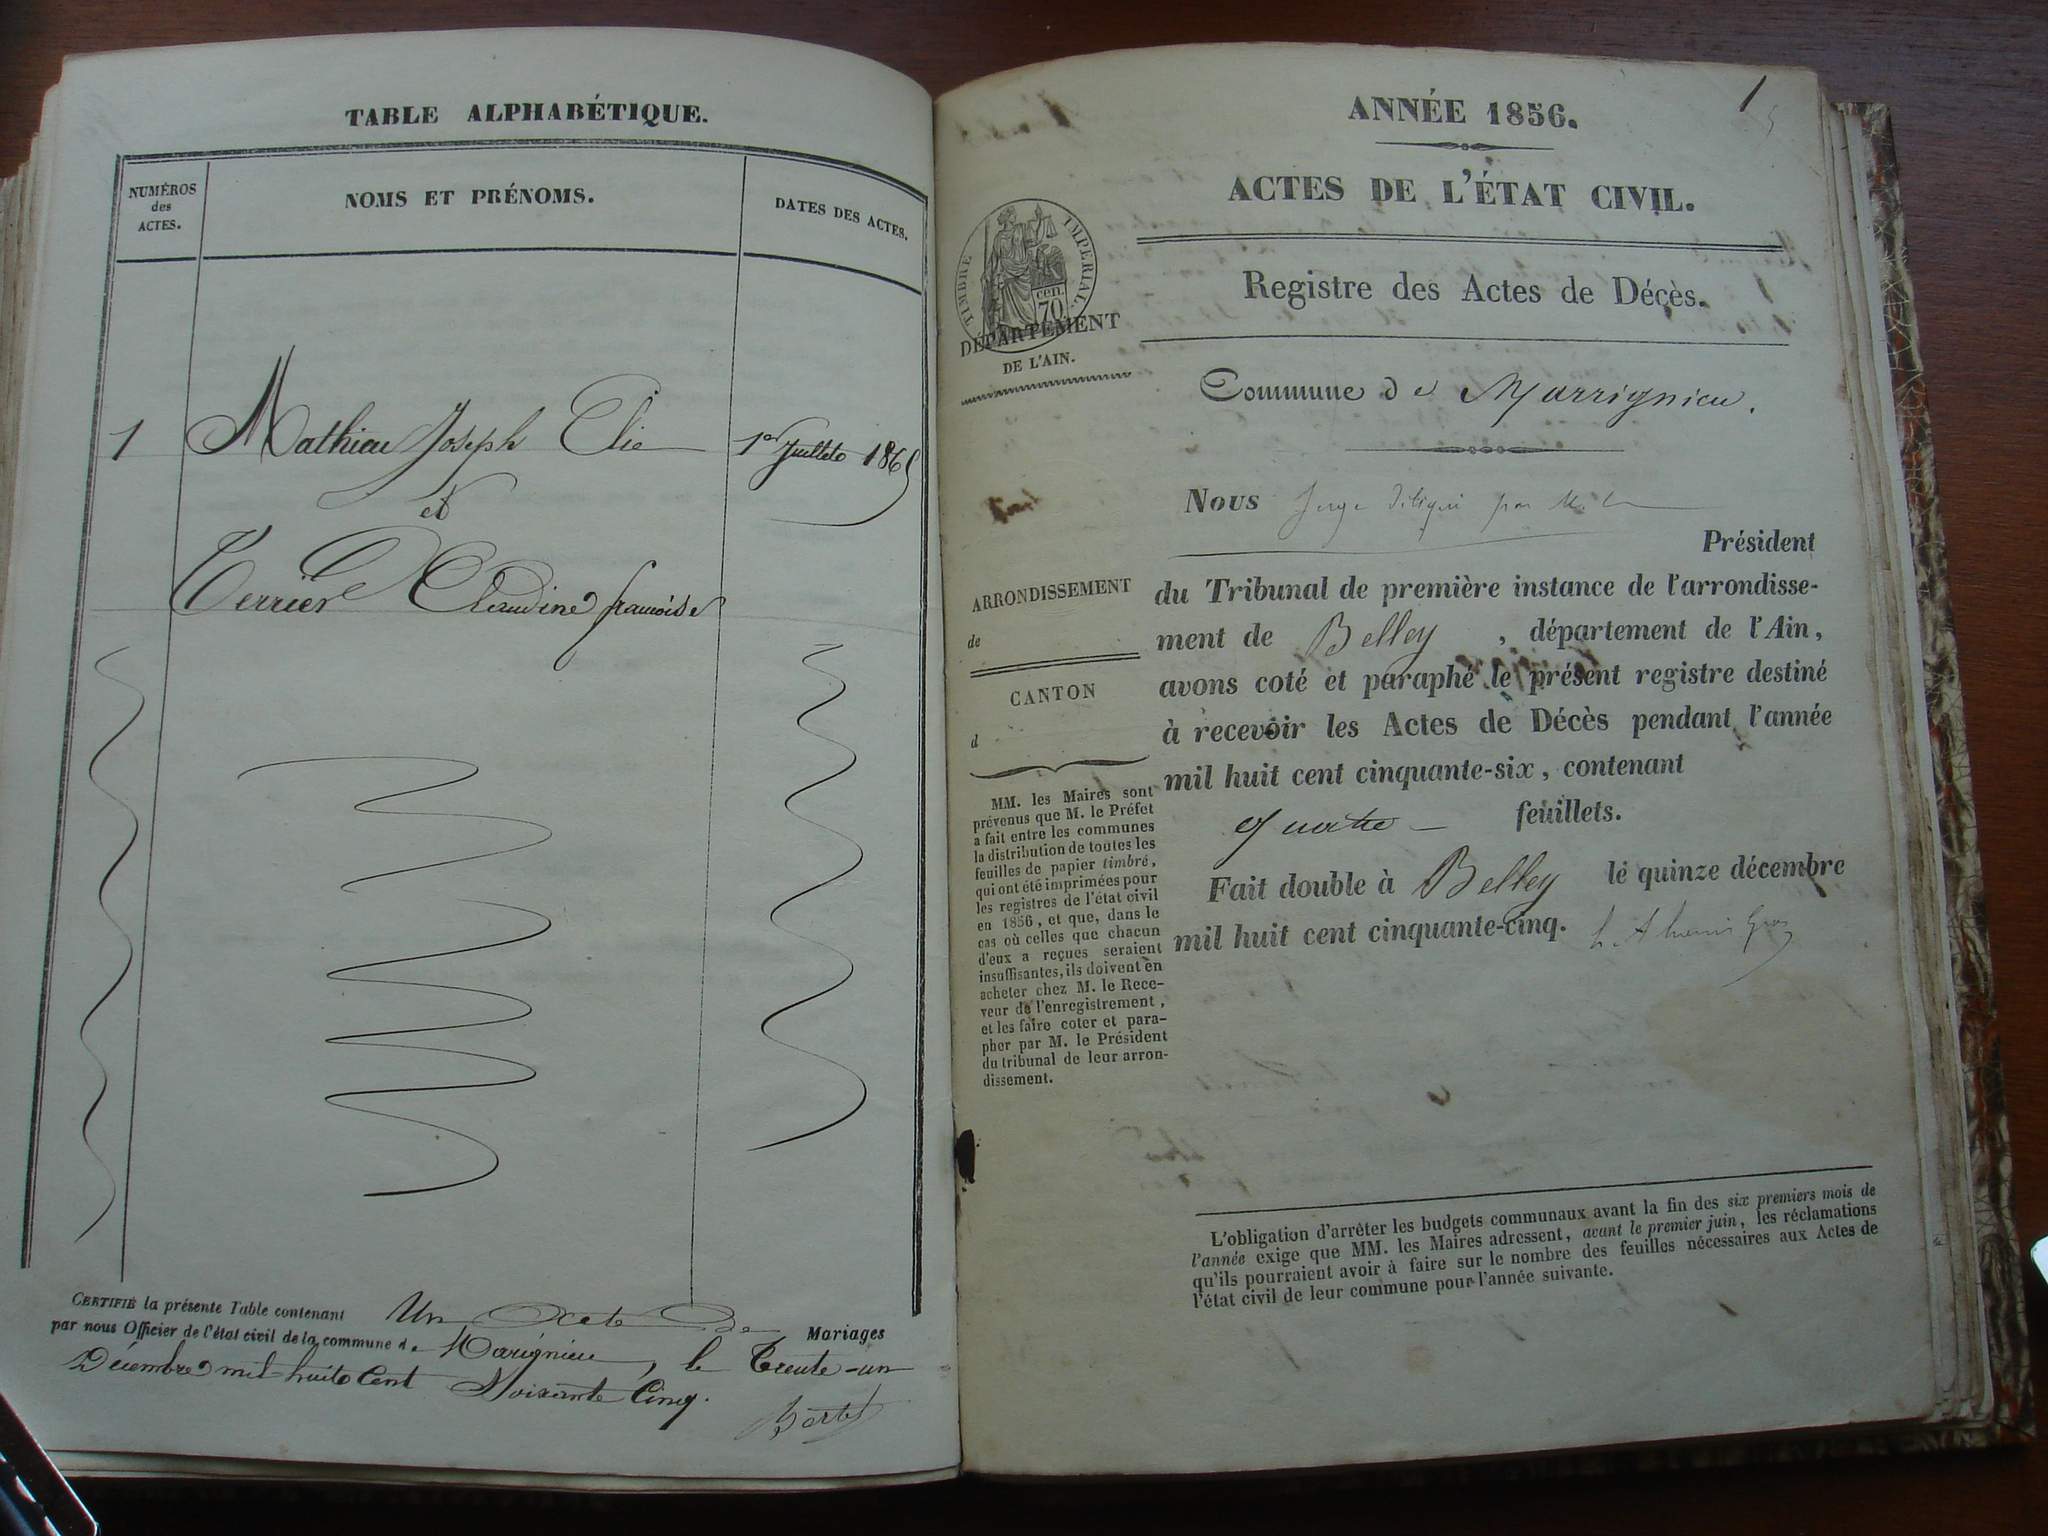 TABLE ALPHABÉTIQUE.
NUMÉROS
des
ACTES.
NOMS ET PRÉNOMS.
DATES DES ACTES.
1 Mathieu Joseph Elie 1er Juillet 1865
et
Terrier Claudine francoise
CERTIFIÉ la présente Table contenant Un Acte de Mariages
par nous Officier de l'état civil de la commune de Marignieu, le Trente-un
Décembre mil huit Cent Soixante Cinq.
1
ANNÉE 1856.
ACTES DE L'ÉTAT CIVIL.
TIMBRE IMPÉRIAL.
70 cen.
DÉPARTEMENT
DE L'AIN.
Registre des Actes de Décès.
Commune de Marrignieu.
Nous Juge par
Président
du Tribunal de première instance de l'arrondisse-
ment de Belley, département de l'Ain,
avons coté et paraphé le présent registre destiné
à recevoir les Actes de Décès pendant l'année
mil huit cent cinquante-six, contenant
quatre feuillets.
Fait double à Belley le quinze décembre
mil huit cent cinquante-cinq.
ARRONDISSEMENT
de
CANTON
d
MM. les Maires sont
prévenus que M. le Préfet
a fait entre les communes
la distribution de toutes les
feuilles de papier timbré,
qui ont été imprimées pour
les registres de l'état civil
en 1856, et que, dans le
cas où celles que chacun
d'eux a reçues seraient
insuffisantes, ils doivent en
acheter chez M. le Rece-
veur de l'enregistrement,
et les faire coter et para-
pher par M. le Président
du tribunal de leur arron-
dissement.
L'obligation d'arrêter les budgets communaux avant la fin des six premiers mois de
l'année exige que MM. les Maires adressent, avant le premier juin, les réclamations
qu'ils pourraient avoir à faire sur le nombre des feuilles nécessaires aux Actes de
l'état civil de leur commune pour l'année suivante.